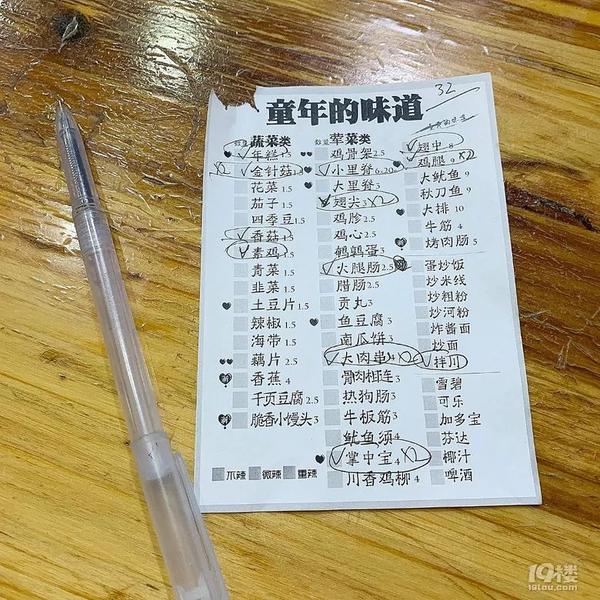 32
童年的味道
数量 蔬菜类
年糕 1.5
X2 金针菇 1.5
花菜 1.5
茄子 1.5
四季豆 1.5
香菇 1.5
素鸡 1.5
青菜 1.5
韭菜 1.5
土豆片 1.5
辣椒 1.5
海带 1.5
藕片 2.5
香蕉 4
千页豆腐 2.5
脆香小馒头 3
不辣 微辣 重辣
数量 荤菜类
鸡骨架 2.5
小里脊 6.20
大里脊 3
翅尖 3 X2
鸡胗 2.5
鸡心 2.5
鹌鹑蛋 3
火腿肠 2.5
腊肠 2.5
贡丸 3
鱼豆腐 3
南瓜饼 3
大肉串 4 X2
骨肉相连 3
热狗肠 3
牛板筋 3
鱿鱼须 4
掌中宝 4 X2
川香鸡柳 4
翅中 8
鸡腿 9 X2
大鱿鱼 9
秋刀鱼 9
大排 10
牛筋 4
烤肉肠 5
蛋炒饭
炒米线
炒粗粉
炒河粉
炸酱面
炒面
拌川
雪碧
可乐
加多宝
芬达
椰汁
啤酒
19楼
19lou.com